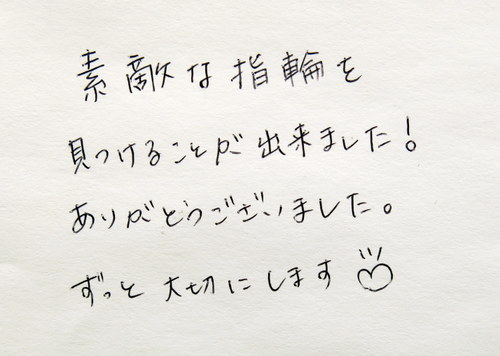 素敵な指輪を
見つけることが出来ました!
ありがとうございました。
ずっと大切にします♡